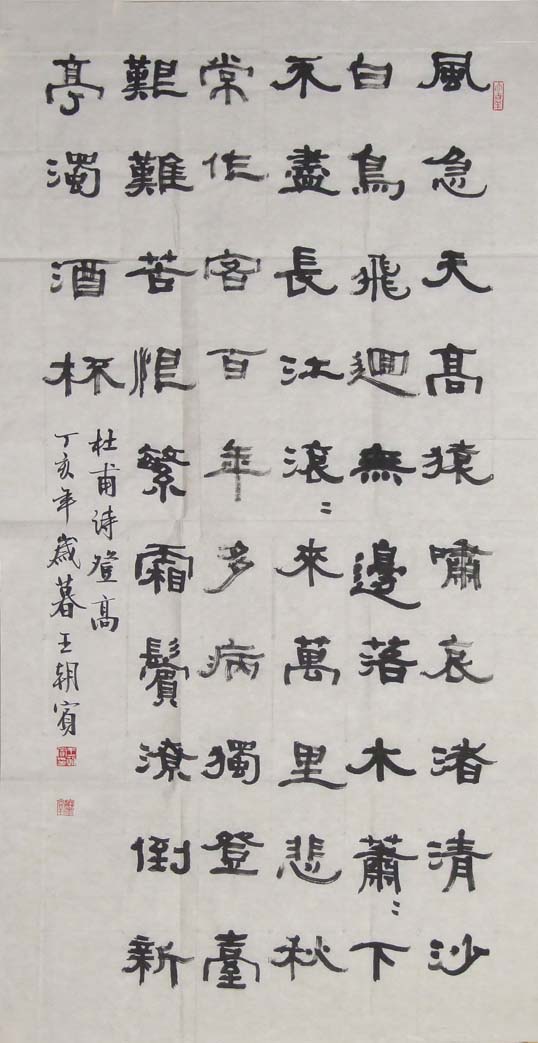 風急天髙猿嘯哀渚清沙
白鳥飛迴無邊落木蕭〻下
不盡長江滾〻來萬里悲秋
常作客百年多病獨登臺
艱難苦恨繁霜鬢潦倒新
亭濁酒杯
杜甫诗登高
丁亥年歲暮王朝賓